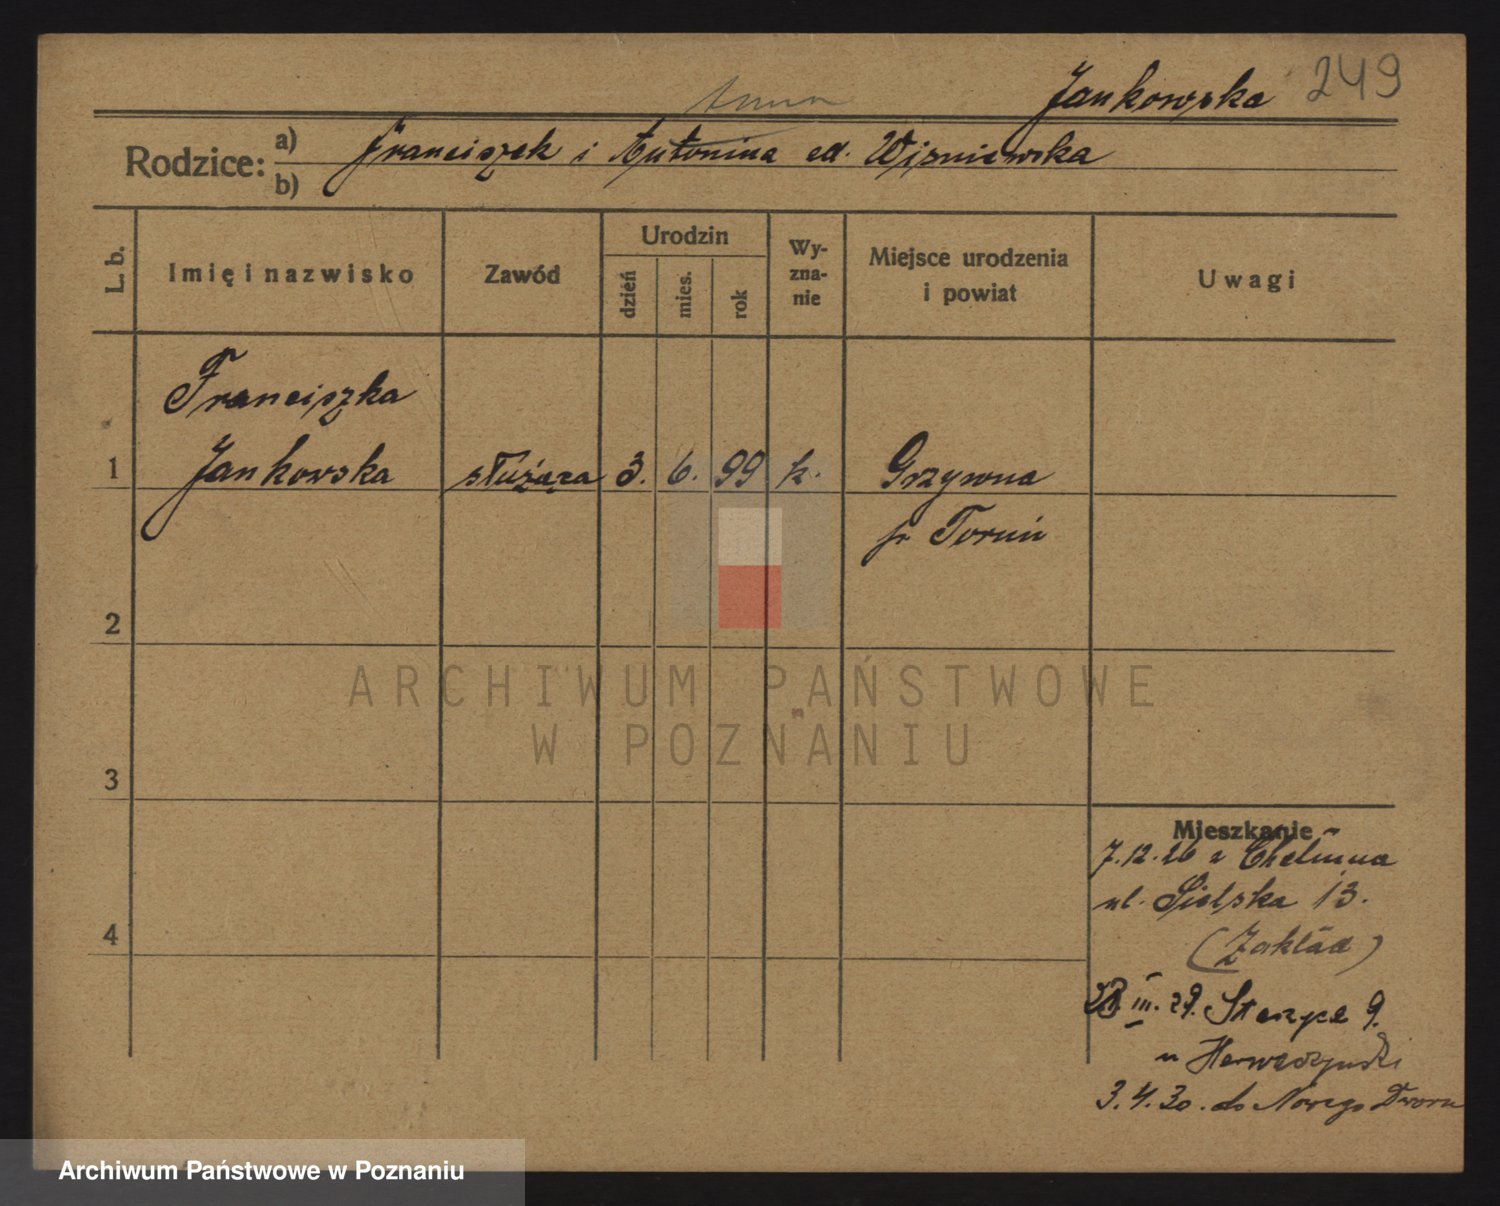 Jankowska 249
Anna
Rodzice: a) Franciszek i Antonina cd. Wiśniewska
b)
L. b. Imię i nazwisko Zawód Urodzin dzień mies. rok Wy-zna-nie Miejsce urodzenia i powiat Uwagi
Franciszka
1 Jankowska służąca 3. 6. 99 k. Grzywna
p Toruń
2
ARCHIWUM PAŃSTWOWE
W POZNANIU
3
Mieszkanie
7.12.26 z Chełmna
ul. Sielska 13.
4
(Zakład)
III. 29. 9.
u
3.4.30. do Nowego Dworu
Archiwum Państwowe w Poznaniu